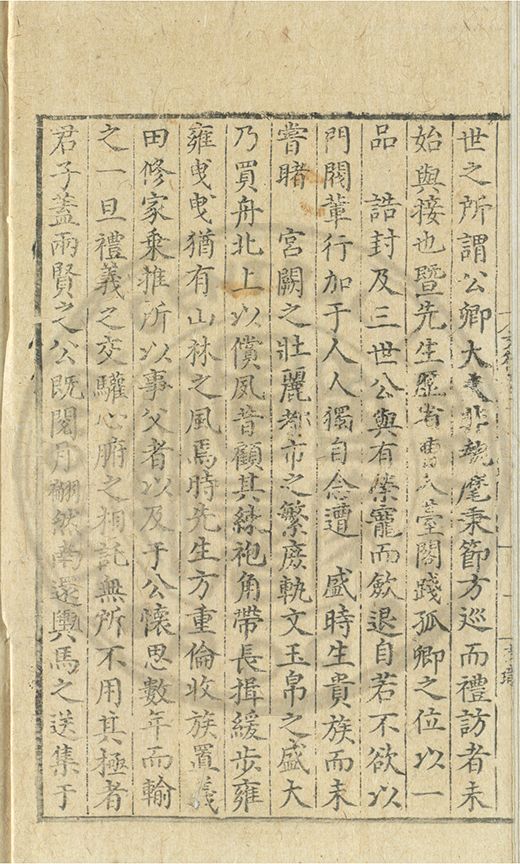 世之所謂公卿大夫非執麾秉節方巡而禮訪者未
始與接也暨先生歷省曹入臺閣踐孤卿之位以一
品　誥封及三世公與有榮寵而斂退自若不欲以
門閥輩行加于人人獨自念遭　盛時生貴族而未
嘗睹　宮闕之壯麗都市之繁庶軌文玉帛之盛大
乃買舟北上以償夙昔顧其綀袍角帶長揖緩步雍
雍曳曳猶有山林之風焉時先生方重倫收族置義
田修家乘推所以事父者以及于公懷思數年而輸
之一旦禮義之交驩心腑之相託無所不用其極者
君子蓋兩賢之公既閱月翩然南還輿馬之送集于